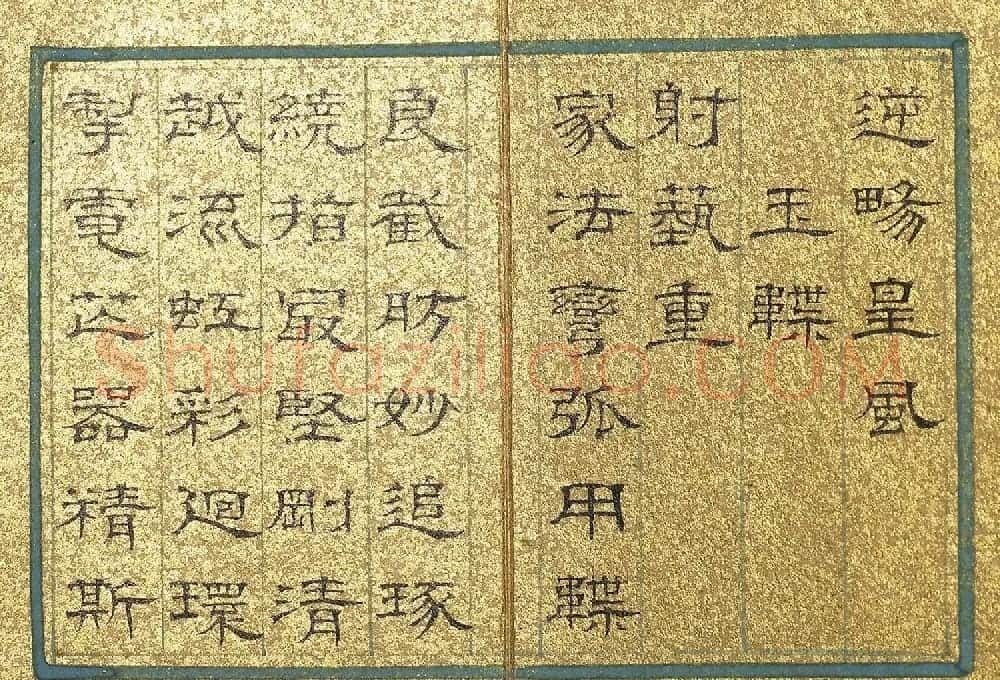 逆暢皇風
玉韘
射藝重
家法彎弧用韘
良截肪妙追琢
繞指最堅剛清
越流虹彩迴環
掣電芒器精斯
Shufaziliao.COM